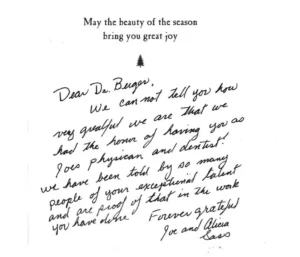 May the beauty of the season
bring you great joy
Dear Dr. Berger,
We can not tell you how
very greatful we are that we
had the honor of having you as
Joes physican and dentist!
We have been told by so many
people of your exceptional talent
and are proof of that in the work
you have done
Forever grateful
Joe and Alicia
Sass